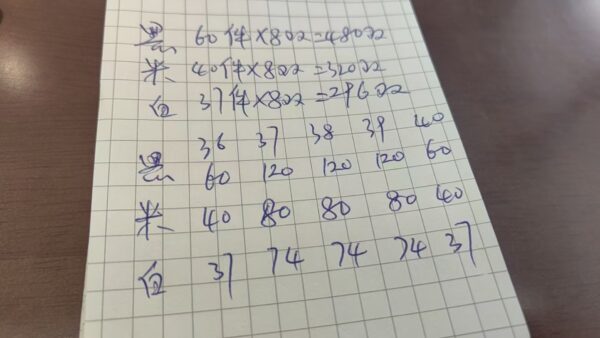 黑 60件×8双=480双
米 40件×8双=320双
37件×8双=296双
36 37 38 39 40
黑 60 120 120 120 60
米 40 80 80 80 40
37 74 74 74 37